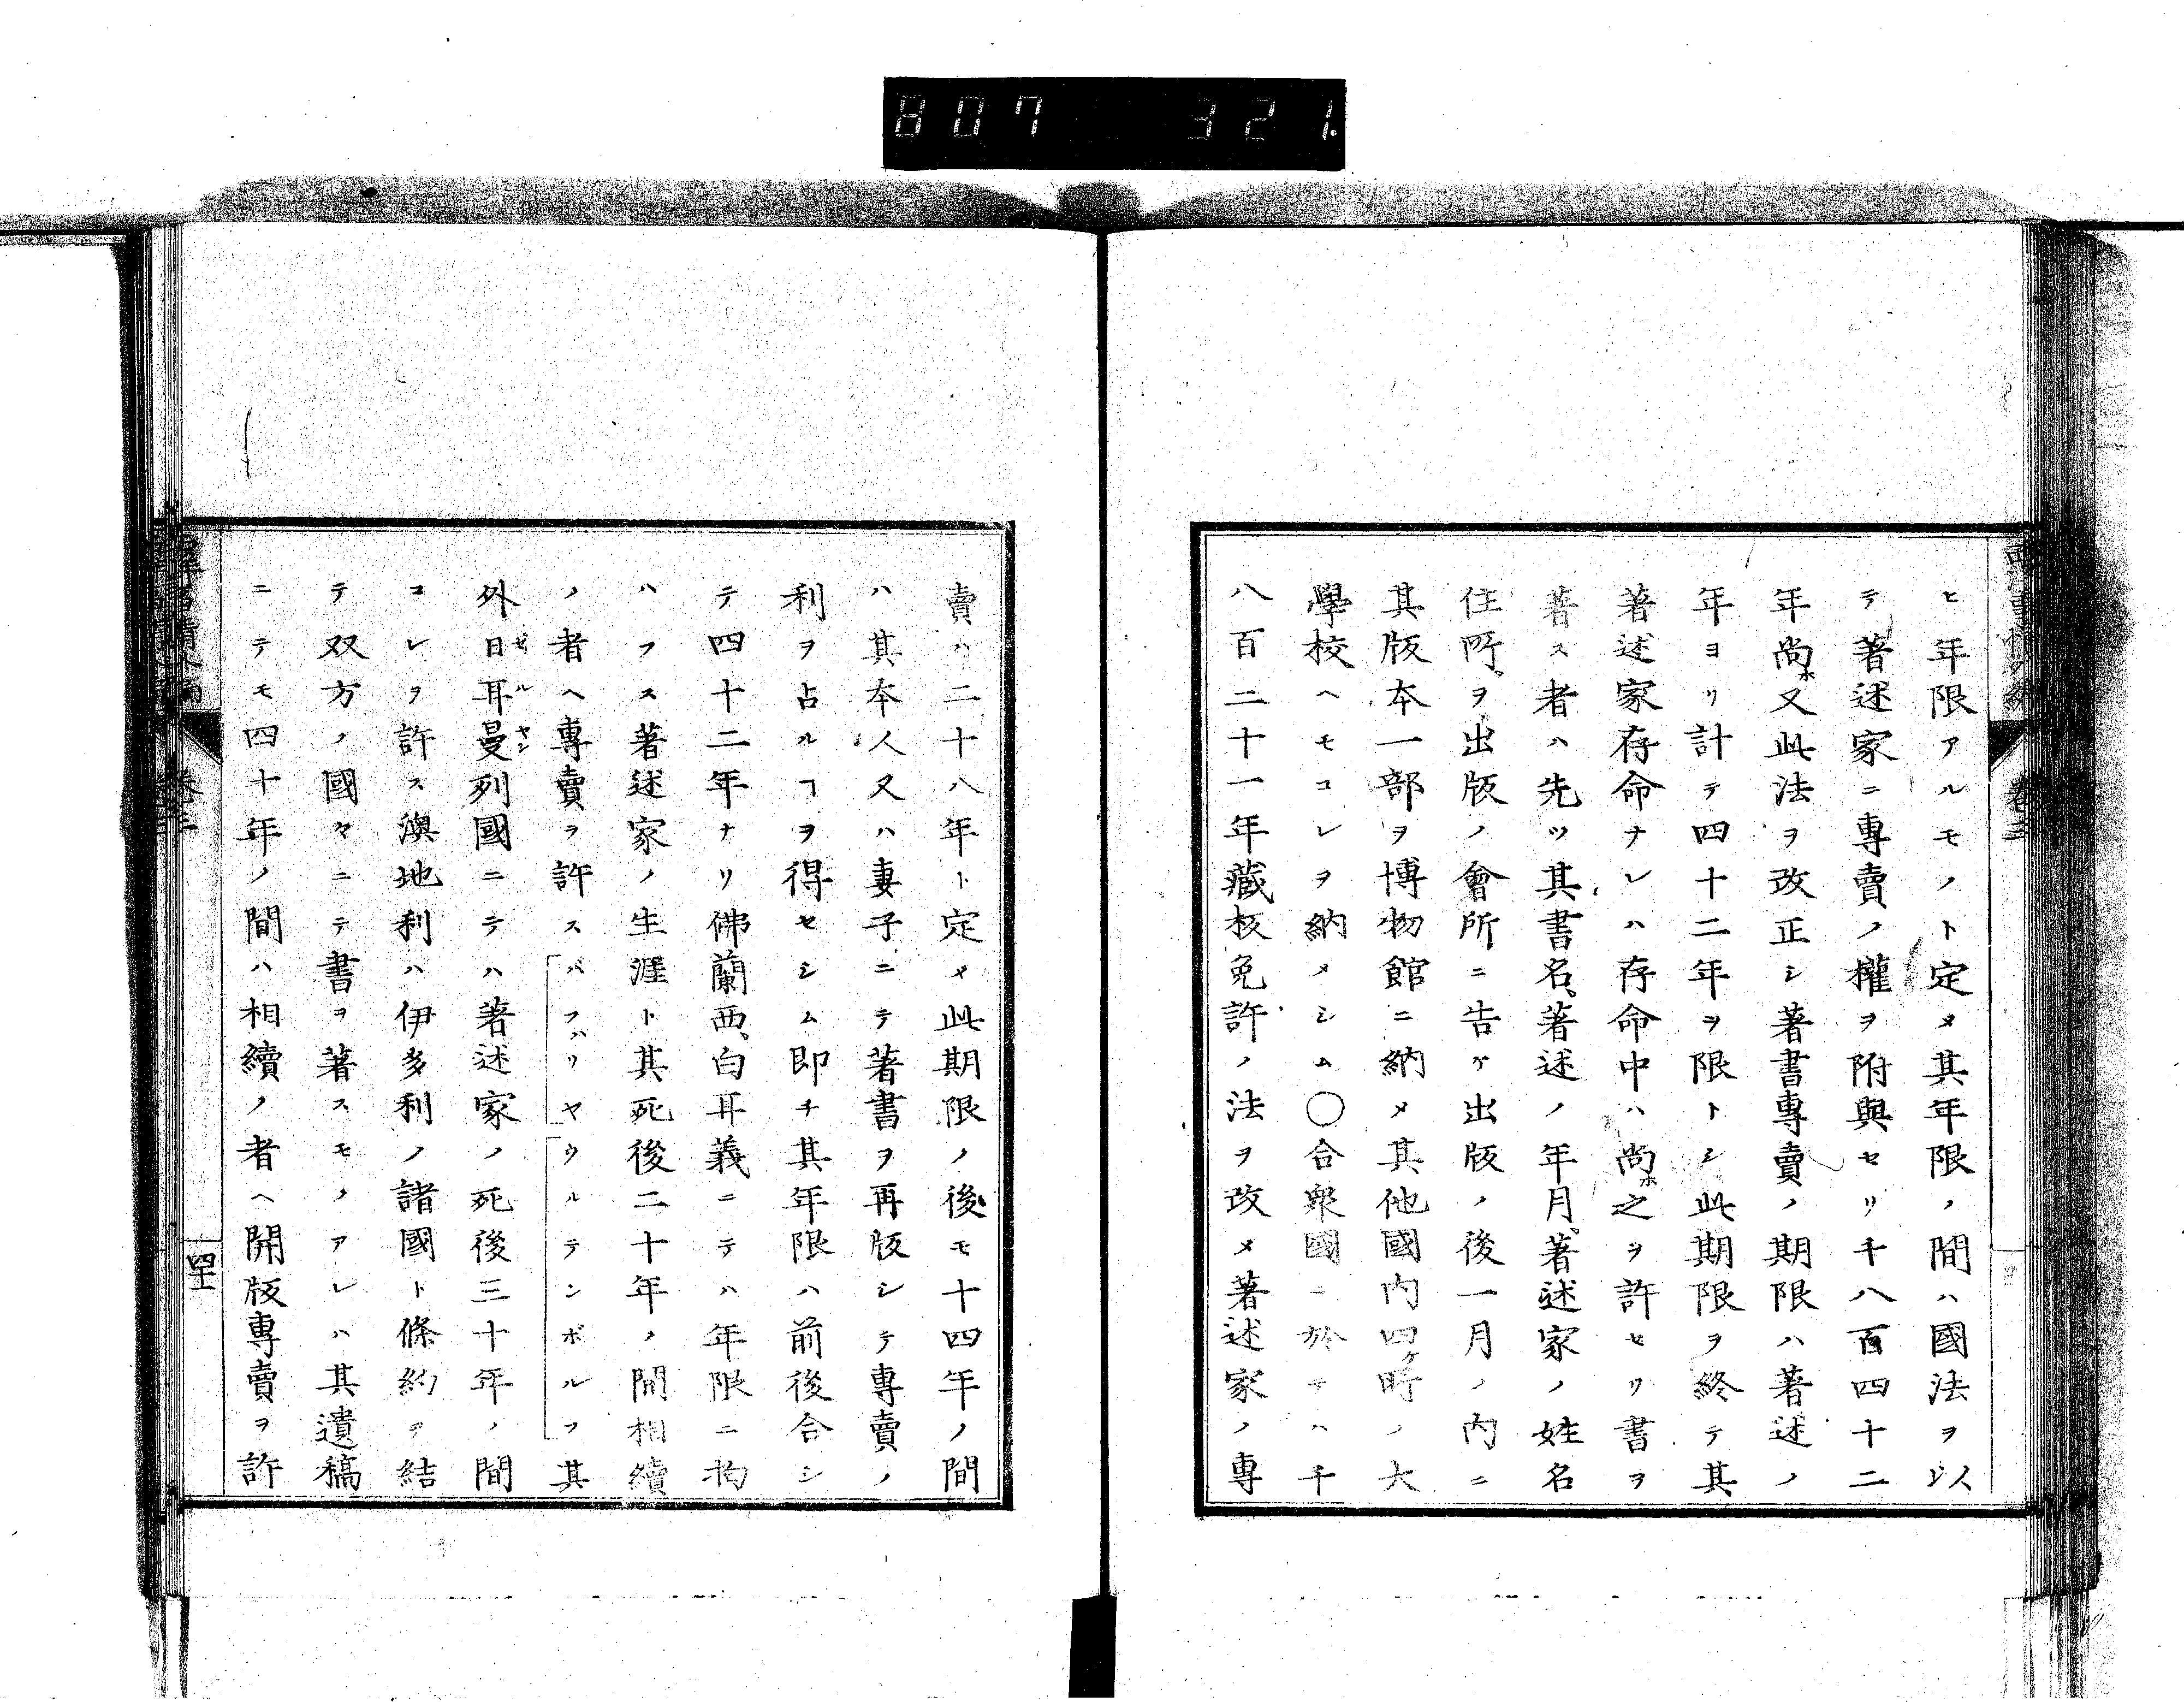 807 321.
ヒ年限アルモノト定メ其年限ノ間ハ國法ヲ以
テ著述家ニ專賣ノ權ヲ附與セリ千八百四十二
年尚ホ又此法ヲ改正シ著書專賣ノ期限ハ著述ノ
年ヨリ計テ四十二年ヲ限トシ此期限ヲ終テ其
著述家存命ナレハ存命中ハ尚ホ之ヲ許セリ書ヲ
著ス者ハ先ツ其書名、著述ノ年月、著述家ノ姓名
住所、ヲ出版ノ會所ニ告ケ出版ノ後一月ノ内ニ
其版本一部ヲ博物館ニ納メ其他國内四ケ所ノ大
學校ヘモコレヲ納メシム〇合衆國ニ於テハ千
八百二十一年藏板免許ノ法ヲ改メ著述家ノ專
賣ハ二十八年ト定メ此期限ノ後モ十四年ノ間
ハ其本人又ハ妻子ニテ著書ヲ再版シテ專賣ノ
利ヲ占ルヿヲ得セシム即チ其年限ハ前後合シ
テ四十二年ナリ佛蘭西、白耳義ニテハ年限ニ拘
ハラス著述家ノ生涯ト其死後二十年ノ間相續
ノ者ヘ專賣ヲ許スバフバリヤウルテンボルフ其
外日耳曼列國ニテハ著述家ノ死後三十年ノ間
コレヲ許ス澳地利ハ伊多利ノ諸國ト條約ヲ結
テ双方ノ國々ニテ書ヲ著スモノアレハ其遺稿
ニテモ四十年ノ間ハ相續ノ者ヘ開版專賣ヲ許